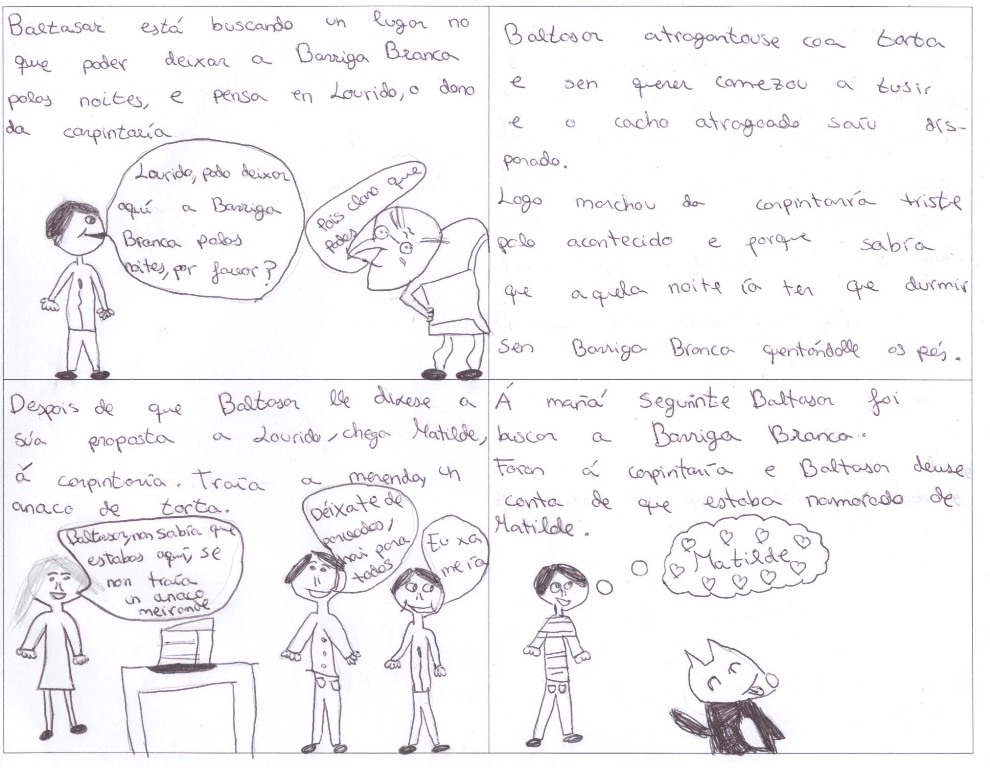 Baltasar está buscando un lugar no
que poder deixar a Barriga Branca
polas noites, e pensa en Lourido, o dono
da carpintaría.
Lourido, podo deixar
aquí a Barriga
Branca polas
noites, por favor?
Pois claro que
podes
Baltasar atragantouse coa torta
e sen querer comezou a tusir
e o cacho atragoado saíu dis-
parado.
Logo marchou da carpintaría triste
polo acontecido e porque sabía
que aquela noite ía ter que durmir
sen Barriga Branca quentándolle os pés.
Despois de que Baltasar lle dixese a
súa proposta a Lourido, chega Matilde,
á carpintaría. Traía a merenda, un
anaco de torta.
Baltasar, non sabía que
estabas aquí, se
non traía
un anaco
meirande
Déixate de
parvadas,
hai para
todos
Eu xa
me ía
Á mañá seguinte Baltasar foi
buscar a Barriga Branca.
Foron á carpintaría e Baltasar deuse
conta de que estaba namorado de
Matilde.
Matilde